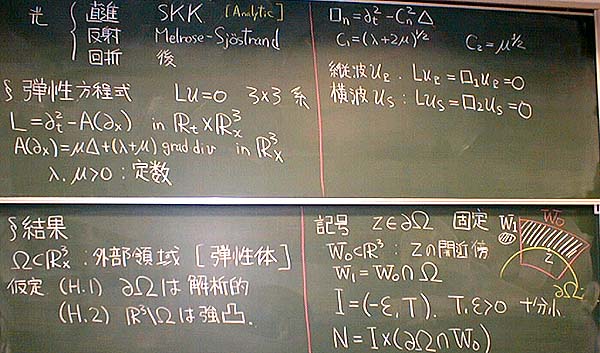 光 { 直進 SKK [Analytic]
反射 Melrose-Sjöstrand
回折 後
§ 弾性方程式 Lu=0 3×3 系
L=∂t²-A(∂x) in ℝt×ℝx³
A(∂x)=μΔ+(λ+μ) grad div in ℝx³
λ, μ>0 : 定数
□n=∂t²-Cn²△
C1=(λ+2μ)^1/2 C2=μ^1/2
縦波 up : Lup=□1up=0
横波 us : Lus=□2us=0
§ 結果
Ω⊂ℝx³ : 外部領域 [弾性体]
仮定 (H.1) ∂Ωは解析的
(H.2) ℝ³\Ωは強凸.
記号 z∈∂Ω 固定
W0⊂ℝ³ : zの開近傍
W1=W0∩Ω
I=(-ε,T). T, ε>0 十分小
N=I×(∂Ω∩W0)
W1 W0
z
∂Ω